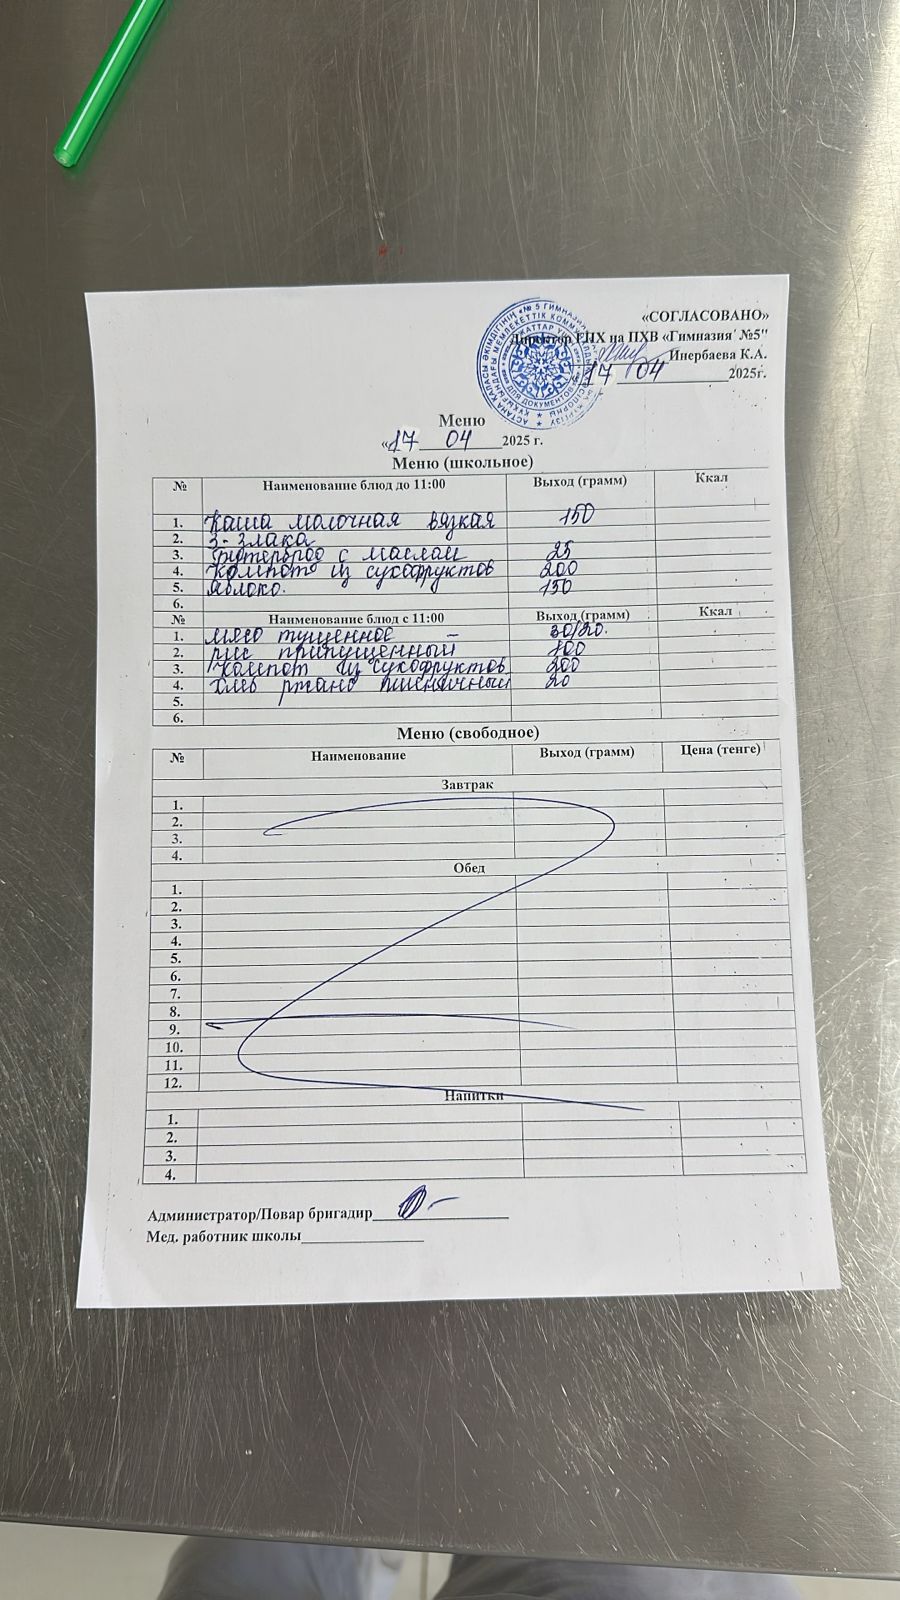 «СОГЛАСОВАНО»
Директор ГПХ на ПХВ «Гимназия №5"
Инербаева К.А.
17 04 2025г.
АСТАНА ҚАЛАСЫ ӘКІМДІГІНІҢ «№ 5 ГИМНАЗИЯ
ДЛЯ ДОКУМЕНТОВ
Меню
«17 04 2025 г.
Меню (школьное)
№ Наименование блюд до 11:00 Выход (грамм) Ккал
1. Каша молочная вязкая 150
2. 3-злака
3. Бутерброд с маслом 25
4. Компот из сухофруктов 200
5. Яблоко. 150
6.
№ Наименование блюд с 11:00 Выход (грамм) Ккал
1. мясо тушенное - 30/20.
2. рис припущенный 100
3. Компот из сухофруктов 200
4. хлеб ржано пшеничный 20
5.
6.
Меню (свободное)
№ Наименование Выход (грамм) Цена (тенге)
Завтрак
1.
2.
3.
4.
Обед
1.
2.
3.
4.
5.
6.
7.
8.
9.
10.
11.
12.
Напитки
1.
2.
3.
4.
Администратор/Повар бригадир
Мед. работник школы